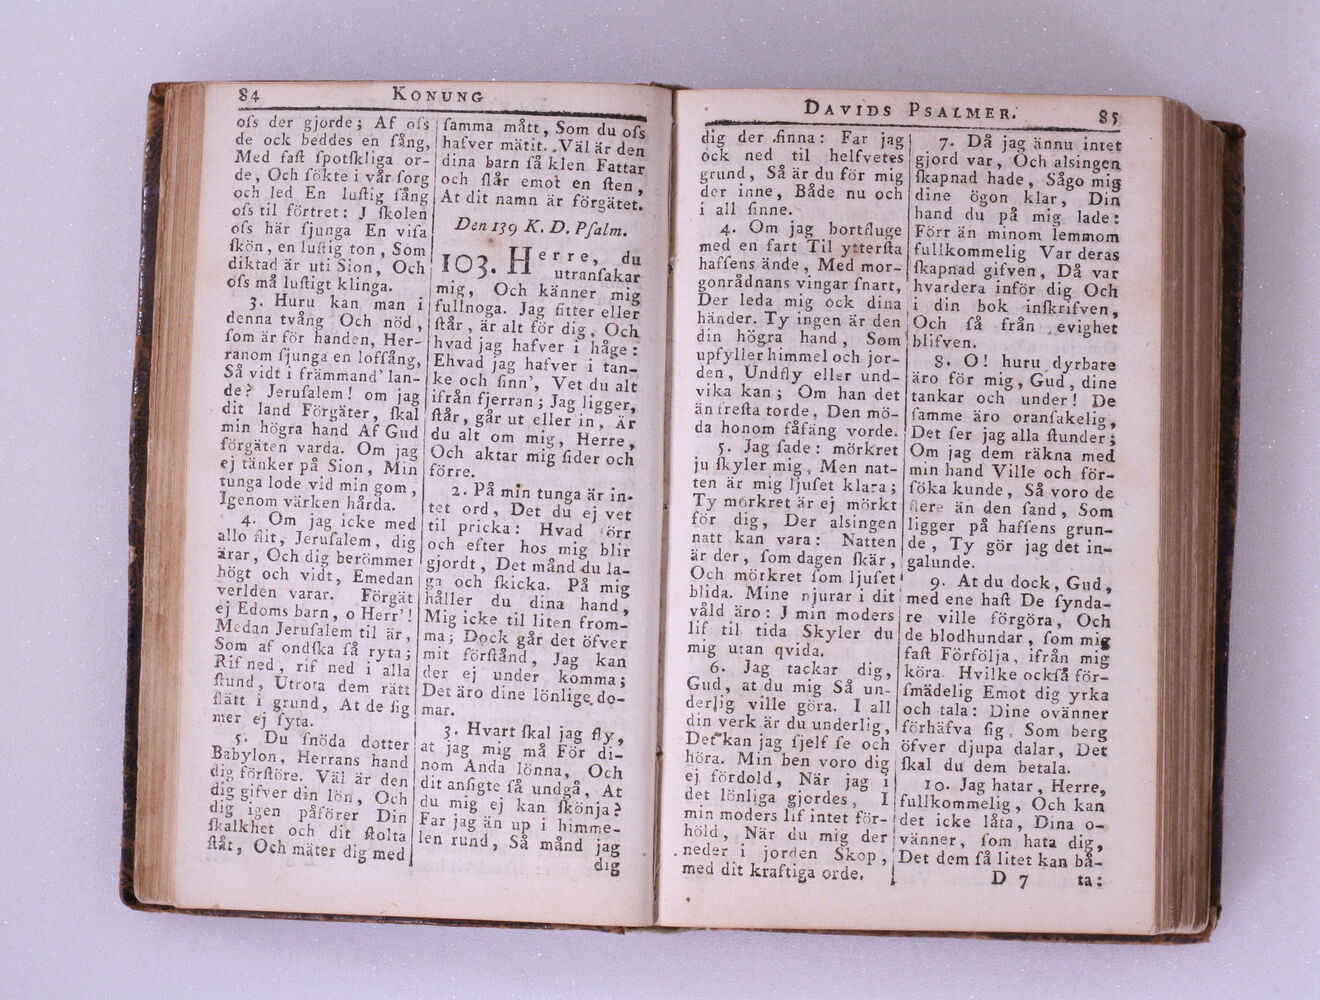 84 KONUNG
oſs der gjorde; Af oſs
de ock beddes en ſång,
Med faſt ſpotſkliga or-
de, Och ſökte i vår ſorg
och led En luſtig ſång
oſs til förtret: J ſkolen
oſs här ſjunga En viſa
ſkön, en luſtig ton, Som
diktad är uti Sion, Och
oſs må luſtigt klinga.
3. Huru kan man i
denna tvång Och nöd,
ſom är för handen, Her-
ranom ſjunga en lofſång,
Så vidt i främmand' lan-
de? Jeruſalem! om jag
dit land Förgäter, ſkal
min högra hand Af Gud
förgäten varda. Om jag
ej tänker på Sion, Min
tunga lode vid min gom,
Igenom värken hårda.
4. Om jag icke med
allo flit, Jeruſalem, dig
ärar, Och dig berömmer
högt och vidt, Emedan
verlden varar. Förgät
ej Edoms barn, o Herr'!
Medan Jeruſalem til är,
Som af ondſka ſå ryta;
Rif ned, rif ned i alla
ſtund, Utrota dem rätt
ſlätt i grund, At de ſig
mer ej ſyta.
5. Du ſnöda dotter
Babylon, Herrans hand
dig förſtöre. Väl är den
dig gifver din lön, Och
dig igen påförer Din
ſkalkhet och dit ſtolta
ſtåt, Och mäter dig med
ſamma mått, Som du oſs
hafver mätit. Väl är den
dina barn ſå klen Fattar
och ſlår emot en ſten,
At dit namn är förgätet.
Den 139 K. D. Pſalm.
103. Herre, du
utranſakar
mig, Och känner mig
fullnoga. Jag ſitter eller
ſtår, är alt för dig, Och
hvad jag hafver i håge:
Ehvad jag hafver i tan-
ke och ſinn', Vet du alt
ifrån fjerran; Jag ligger,
ſtår, går ut eller in, Är
du alt om mig, Herre,
Och aktar mig ſider och
förre.
2. På min tunga är in-
tet ord, Det du ej vet
til pricka: Hvad förr
och efter hos mig blir
gjordt, Det månd du la-
ga och ſkicka. På mig
håller du dina hand,
Mig icke til liten from-
ma; Dock går det öfver
mit förſtånd, Jag kan
der ej under komma;
Det äro dine lönlige do-
mar.
3. Hvart ſkal jag fly,
at jag mig må För di-
nom Anda lönna, Och
dit anſigte ſå undgå, At
du mig ej kan ſkönja?
Far jag än up i himme-
len rund, Så månd jag
dig
DAVIDS PSALMER. 85
dig der finna: Far jag
ock ned til helfvetes
grund, Så är du för mig
der inne, Både nu och
i all ſinne.
4. Om jag bortfluge
med en fart Til ytterſta
haffens ände, Med mor-
gonrådnans vingar ſnart,
Der leda mig ock dina
händer. Ty ingen är den
din högra hand, Som
upfyller himmel och jor-
den, Undfly eller und-
vika kan; Om han det
än freſta torde, Den mö-
da honom fåfäng vorde.
5. Jag ſade: mörkret
ju ſkyler mig, Men nat-
ten är mig ljuſet klara;
Ty mörkret är ej mörkt
för dig, Der alsingen
natt kan vara: Natten
är der, ſom dagen ſkär,
Och mörkret ſom ljuſet
blida. Mine njurar i dit
våld äro: J min moders
lif til tida Skyler du
mig utan qvida.
6. Jag tackar dig,
Gud, at du mig Så un-
derlig ville göra. I all
din verk är du underlig,
Det kan jag ſjelf ſe och
höra. Min ben voro dig
ej fördold, När jag i
det lönliga gjordes, I
min moders lif intet för-
höld, När du mig der
neder i jorden Skop,
med dit kraftiga orde.
7. Då jag ännu intet
gjord var, Och alsingen
ſkapnad hade, Sågo mig
dine ögon klar, Din
hand du på mig lade:
Förr än minom lemmom
fullkommelig Var deras
ſkapnad gifven, Då var
hvardera inför dig Och
i din bok inſkrifven,
Och ſå från evighet
blifven.
8. O! huru dyrbare
äro för mig, Gud, dine
tankar och under! De
ſamme äro oranſakelig,
Det ſer jag alla ſtunder;
Om jag dem räkna med
min hand Ville och för-
ſöka kunde, Så voro de
flere än den ſand, Som
ligger på haffens grun-
de, Ty gör jag det in-
galunde.
9. At du dock, Gud,
med ene haſt De ſynda-
re ville förgöra, Och
de blodhundar, ſom mig
faſt Förfölja, ifrån mig
köra. Hvilke ockſå för-
ſmädelig Emot dig yrka
och tala: Dine ovänner
förhäfva ſig, Som berg
öfver djupa dalar, Det
ſkal du dem betala.
10. Jag hatar, Herre,
fullkommelig, Och kan
det icke låta, Dina o-
vänner, ſom hata dig,
Det dem ſå litet kan bå-
D 7 ta: